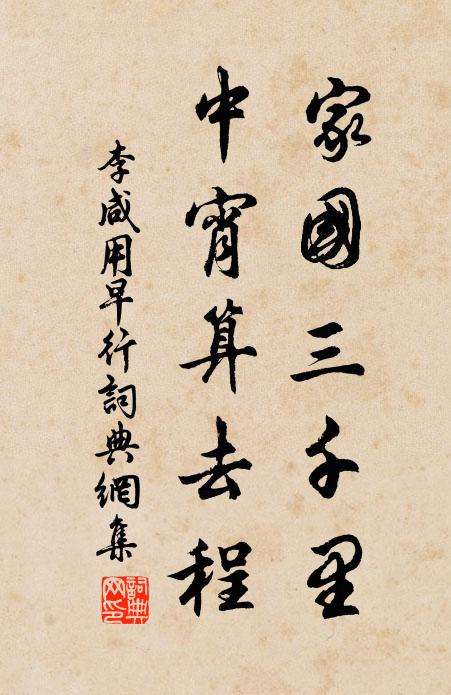 家國三千里
中宵算去程
李咸用早行詞典網集
詞典網印